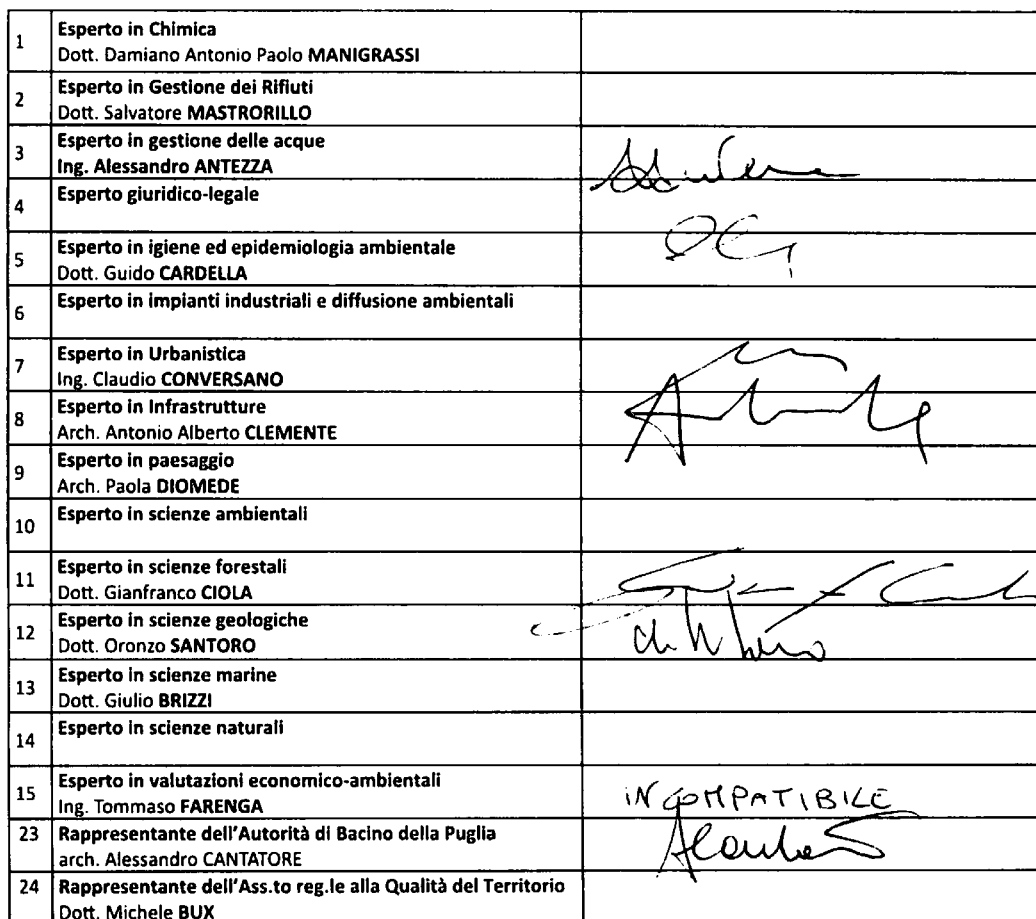 1
Esperto in Chimica
Dott. Damiano Antonio Paolo MANIGRASSI
2
Esperto in Gestione dei Rifiuti
Dott. Salvatore MASTRORILLO
3
Esperto in gestione delle acque
Ing. Alessandro ANTEZZA
4
Esperto giuridico-legale
5
Esperto in igiene ed epidemiologia ambientale
Dott. Guido CARDELLA
6
Esperto in impianti industriali e diffusione ambientali
7
Esperto in Urbanistica
Ing. Claudio CONVERSANO
8
Esperto in Infrastrutture
Arch. Antonio Alberto CLEMENTE
9
Esperto in paesaggio
Arch. Paola DIOMEDE
10
Esperto in scienze ambientali
11
Esperto in scienze forestali
Dott. Gianfranco CIOLA
12
Esperto in scienze geologiche
Dott. Oronzo SANTORO
13
Esperto in scienze marine
Dott. Giulio BRIZZI
14
Esperto in scienze naturali
15
Esperto in valutazioni economico-ambientali
Ing. Tommaso FARENGA
INCOMPATIBILE
23
Rappresentante dell'Autorità di Bacino della Puglia
arch. Alessandro CANTATORE
24
Rappresentante dell'Ass.to reg.le alla Qualità del Territorio
Dott. Michele BUX